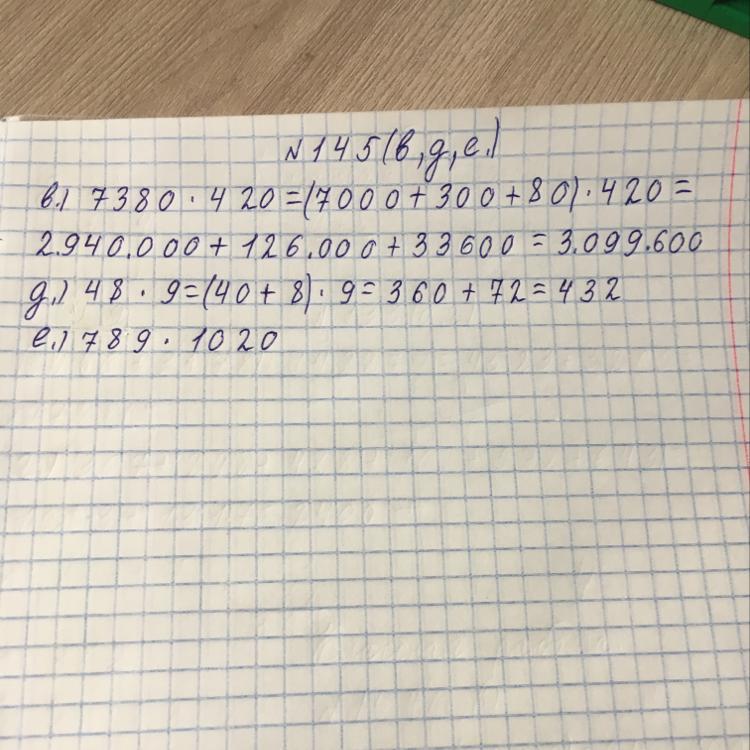 №145(в,д,е.)
в.) 7380 · 420 =(7000+300+80)·420=
2.940.000+126.000+33600=3.099.600
д.) 48 · 9=(40+8)·9=360+72=432
е.) 789 · 1020